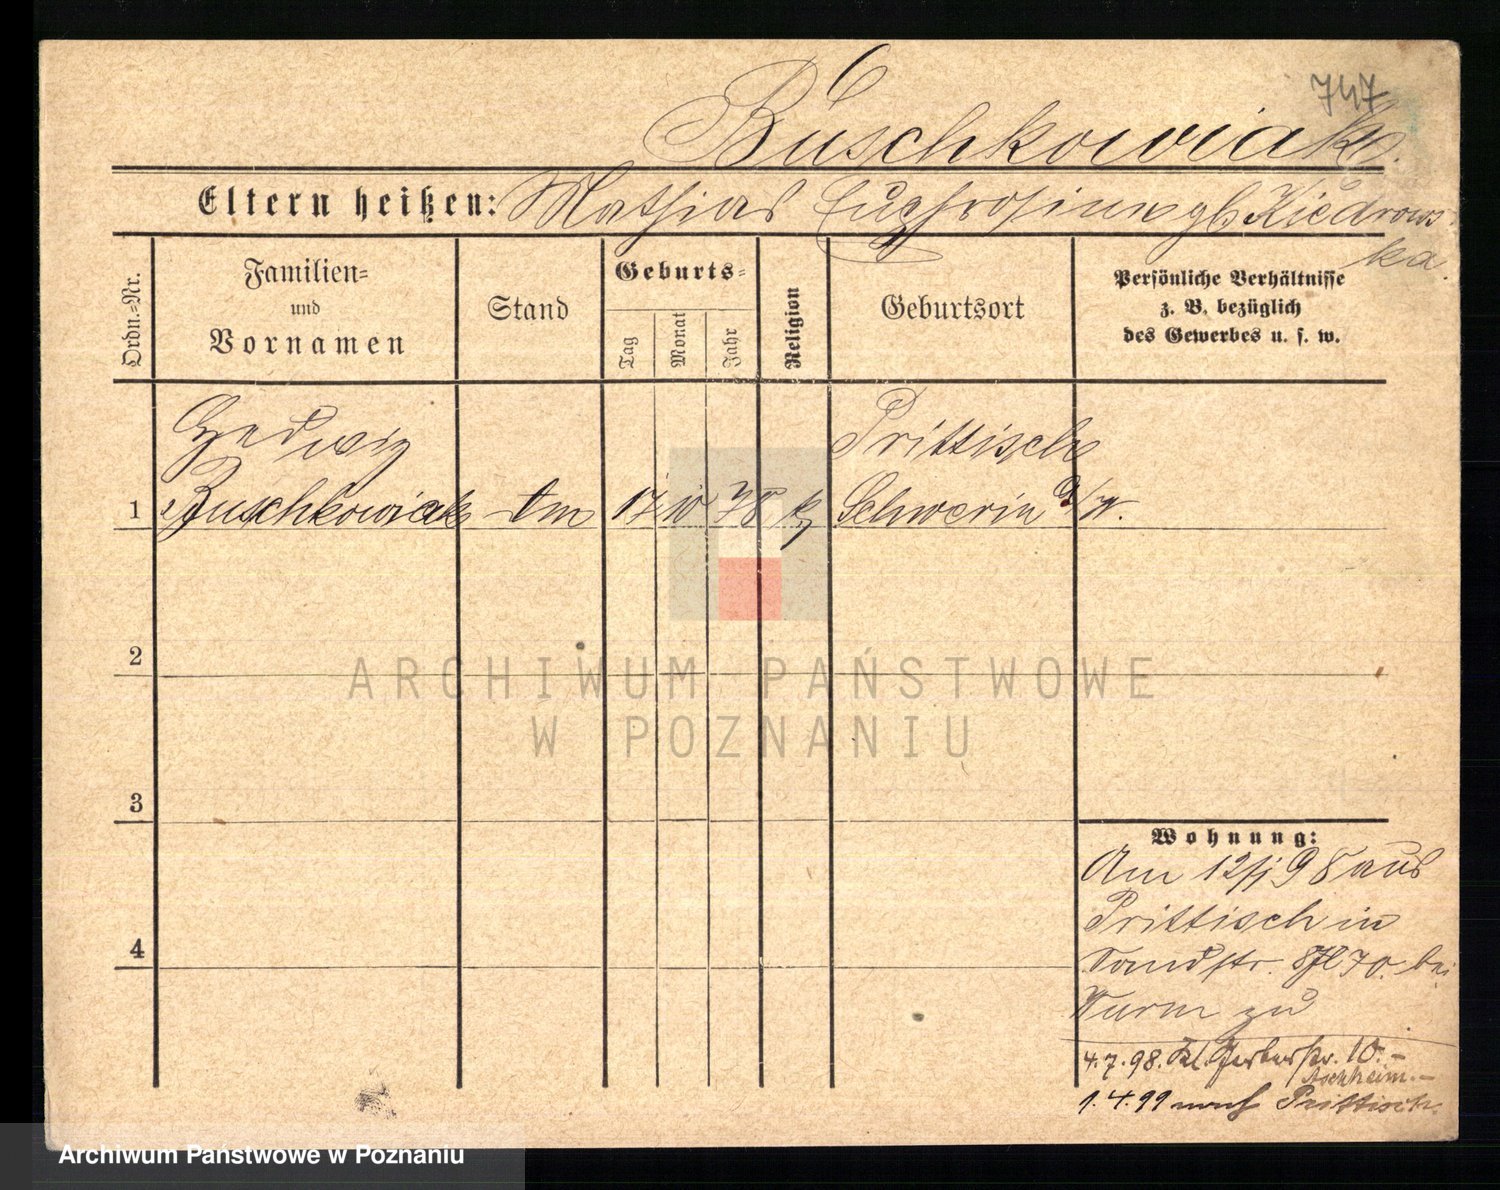 747
Buschkowiak.
Eltern heißen: Mathias Euphrosina gb Kiedrows
ka.
Ordn.-Nr.
Familien- und Vornamen
Stand
Geburts-
Tag
Monat
Jahr
Religion
Geburtsort
Persönliche Verhältnisse
z. B. bezüglich
des Gewerbes u. s. w.
Hedwig
Prittisch
1 Buschkowiak 17 10 78 k Schwerin a/W.
2
3
4
ARCHIWUM PAŃSTWOWE
W POZNANIU
Wohnung:
Am 12/1 98 aus
Prittisch in
Sandstr. 8 70. bei
Wurm zu
4.7.98. Kl. Gerberstr. 10.-
Aschheim.-
1.4.99 nach Prittisch.
Archiwum Państwowe w Poznaniu